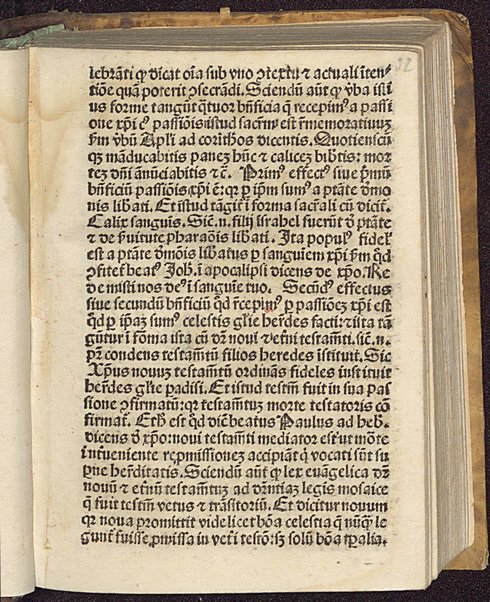 32
lebrāti ꝙ dicat oīa sub vno ꝯtextu ⁊ actuali īten
tiōe quā poterit ꝯsecrādi. Sciendū aūt ꝙ v̄ba isti
us forme tangūt q̄tuor bn̄ficia q̄ recepimꝰ a passi
one xp̄i cꝰ passiōis istud sacrm̄ est r̄memoratiuuꝫ
ẜm v̄bū Apl̄i ad corīthos dicentis. Quotienscū
qꝫ māducabitis paneꝫ hūc ⁊ calicē bibtis: mor
teꝫ dn̄i ānūciabitis ⁊c̄. Primꝰ effectꝰ siue p̄mū
bn̄ficiū passiōis xp̄i ē: ꝙ ꝑ ip̄m sumꝰ a ptāte dēmo
nis libati. Et istud tāgit̄ ī forma sacr̄ali cū dicit̄.
Calix sanguīs. Sic̄.n. filij israhel fuerūt d̄ ptāte
⁊ de ẜuitute pharaōis libati. Ita populꝰ fidel̄
est a ptāte dēmōis libatus ꝑ sanguiem xp̄i ẜm qd̄
ꝯfitet̄ beatꝰ Joh. ī apocalipsi dicens de xp̄o. Re
demisti nos deꝰ ī sanguīe tuo. Secūdꝰ effectus
siue secundū bn̄ficiū qd̄ r̄cepimꝰ ꝑ passioēꝫ xp̄i est
qd̄ ꝑ ip̄aꝫ sumꝰ celestis gl̄ie her̄des facti: ⁊ ista tā
gūtur ī forma ista cū dr̄ noui ⁊ et̄ni testam̄ti. sic̄.n.
pr̄ condens testam̄tū filios heredes īstituit. Sic
Xp̄us nouuꝫ testam̄tū ordinās fideles instituit
her̄des gl̄ie ꝑadisi. Et istud testm̄ fuit in sua pas
sione ꝯfirmatū: qꝛ testam̄tuꝫ morte testatoris cō
firmat̄. Et hͦ est qd̄ dic̄ beatus Paulus ad heb.
dicens d̄ xp̄o: noui testam̄ti mediator est ut mōte
interueniente rep̄missioneꝫ accipiāt q̄ vocati sūt su
ꝑne her̄ditatis. Sciendū aūt ꝙ lex euāgelica dr̄
nouū ⁊ et̄nū testam̄tuꝫ ad dr̄ntiaꝫ legis mosaice
q̄ fuit testm̄ vetus ⁊ trāsitoriū. Et dicitur nouum
qꝛ noua promittit videlicet bōa celestia q̄ nūq̄ le
gunt̄ fuisse ꝓmissa in vet̄i testō: sꝫ solū bōa tꝑalia.